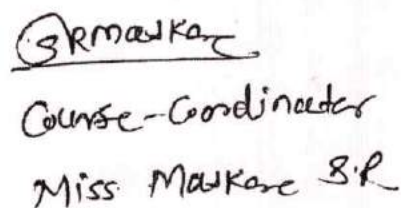 SRMaskare
Course-Coordinator
Miss Maskare S.R